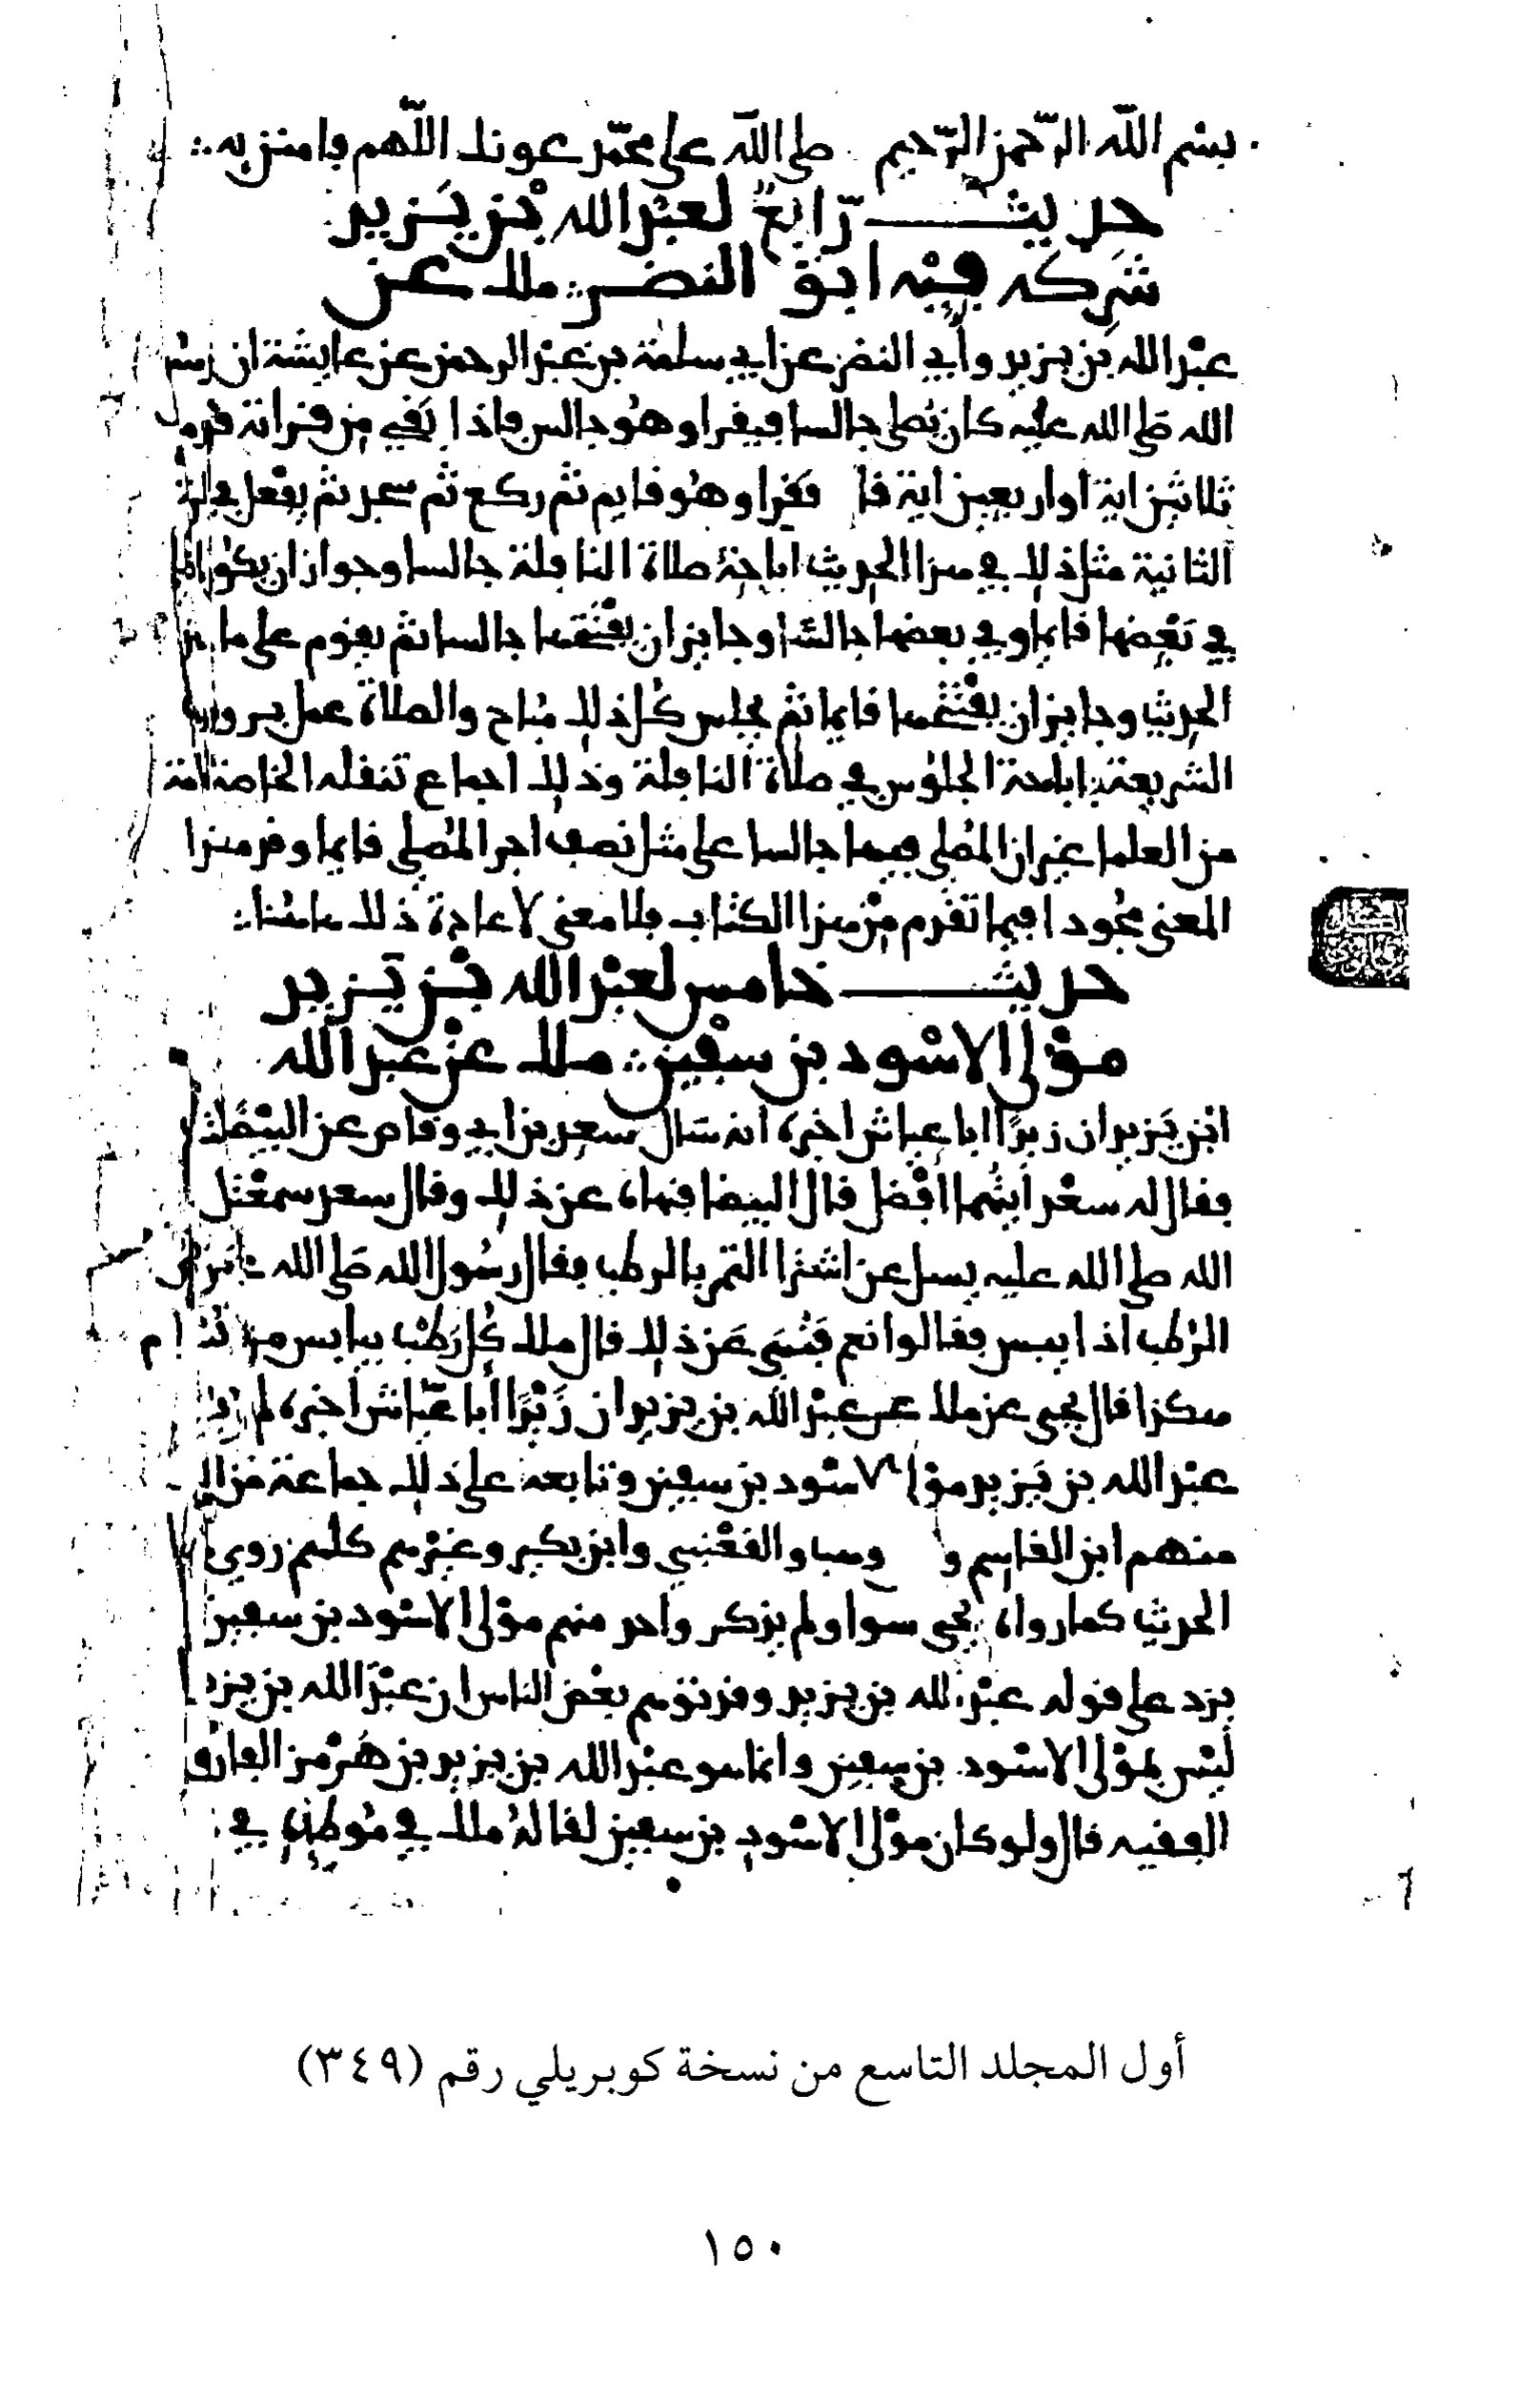 بسم الله الرحمن الرحيم صلى الله على محمد عونك اللهم يا من به
حديث رابع لعبد الله بن يزيد
شركه فيه أبو النضر ملك عن
عبد الله بن يزيد وأبي النضر عن ابي سلمة بن عبد الرحمن عن عايشة ان رسول
الله صلى الله عليه كان يصلي جالسا فيقرا وهو جالس فاذا بقي من قراته قدر ما
ثلاثين اية او اربعين اية قام فقرا وهو قايم ثم ركع ثم سجد ثم يفعل في الركعة
الثانية مثل ذلك في هذا الحديث اباحة صلاة النافلة جالسا وجواز ان يكون المصلي
في بعضها قايما وفي بعضها جالسا وجايز ان يفتتحها جالسا ثم يقوم على ما في هذا
الحديث وجايز ان يفتتحها قايما ثم يجلس كل ذلك مباح والصلاة عمل بر وردت
الشريعة باباحة الجلوس في صلاة النافلة وذلك اجماع تنقله الخاصة والعامة
من العلما غير ان المصلي فيها جالسا على مثل نصف اجر المصلي قايما وقد مر هذا
المعنى مجودا فيما تقدم من هذا الكتاب فلا معنى لاعادة ذلك هاهنا
حديث خامس لعبد الله بن يزيد
مولى الاسود بن سفين ملك عن عبد الله
ابن يزيد ان زيدا ابا عياش اخبره انه سال سعد بن ابي وقاص عن البيضا
فقال له سعد ايتهما افضل قال البيضا فنهاه عن ذلك وقال سعد سمعت رسول
الله صلى الله عليه يسل عن اشترا التمر بالرطب فقال رسول الله صلى الله عليه اينقص
الرطب اذا يبس فقالوا نعم فنهى عن ذلك قال ملك كل رطب بيابس من نوعه حرام
هكذا قال يحيى عن ملك عن عبد الله بن يزيد ان زيدا ابا عياش اخبره لم يقل
عبد الله بن يزيد مولى الاسود بن سفين وتابعه على ذلك جماعة من الرواة
منهم ابن القاسم وابن وهب والقعنبي وابن بكير وغيرهم كلهم روى
الحديث كما رواه يحيى سوا ولم يذكر واحد منهم مولى الاسود بن سفين
يزد على قوله عبد الله بن يزيد وقد توهم بعض الناس ان عبد الله بن يزيد
ليس بمولى الاسود بن سفين وانما هو عبد الله بن يزيد بن هرمز القارئ
الفقيه قال ولو كان مولى الاسود بن سفين لقاله ملك في موطئه في
أول المجلد التاسع من نسخة كوبريلي رقم (٣٤٩)
١٥٠